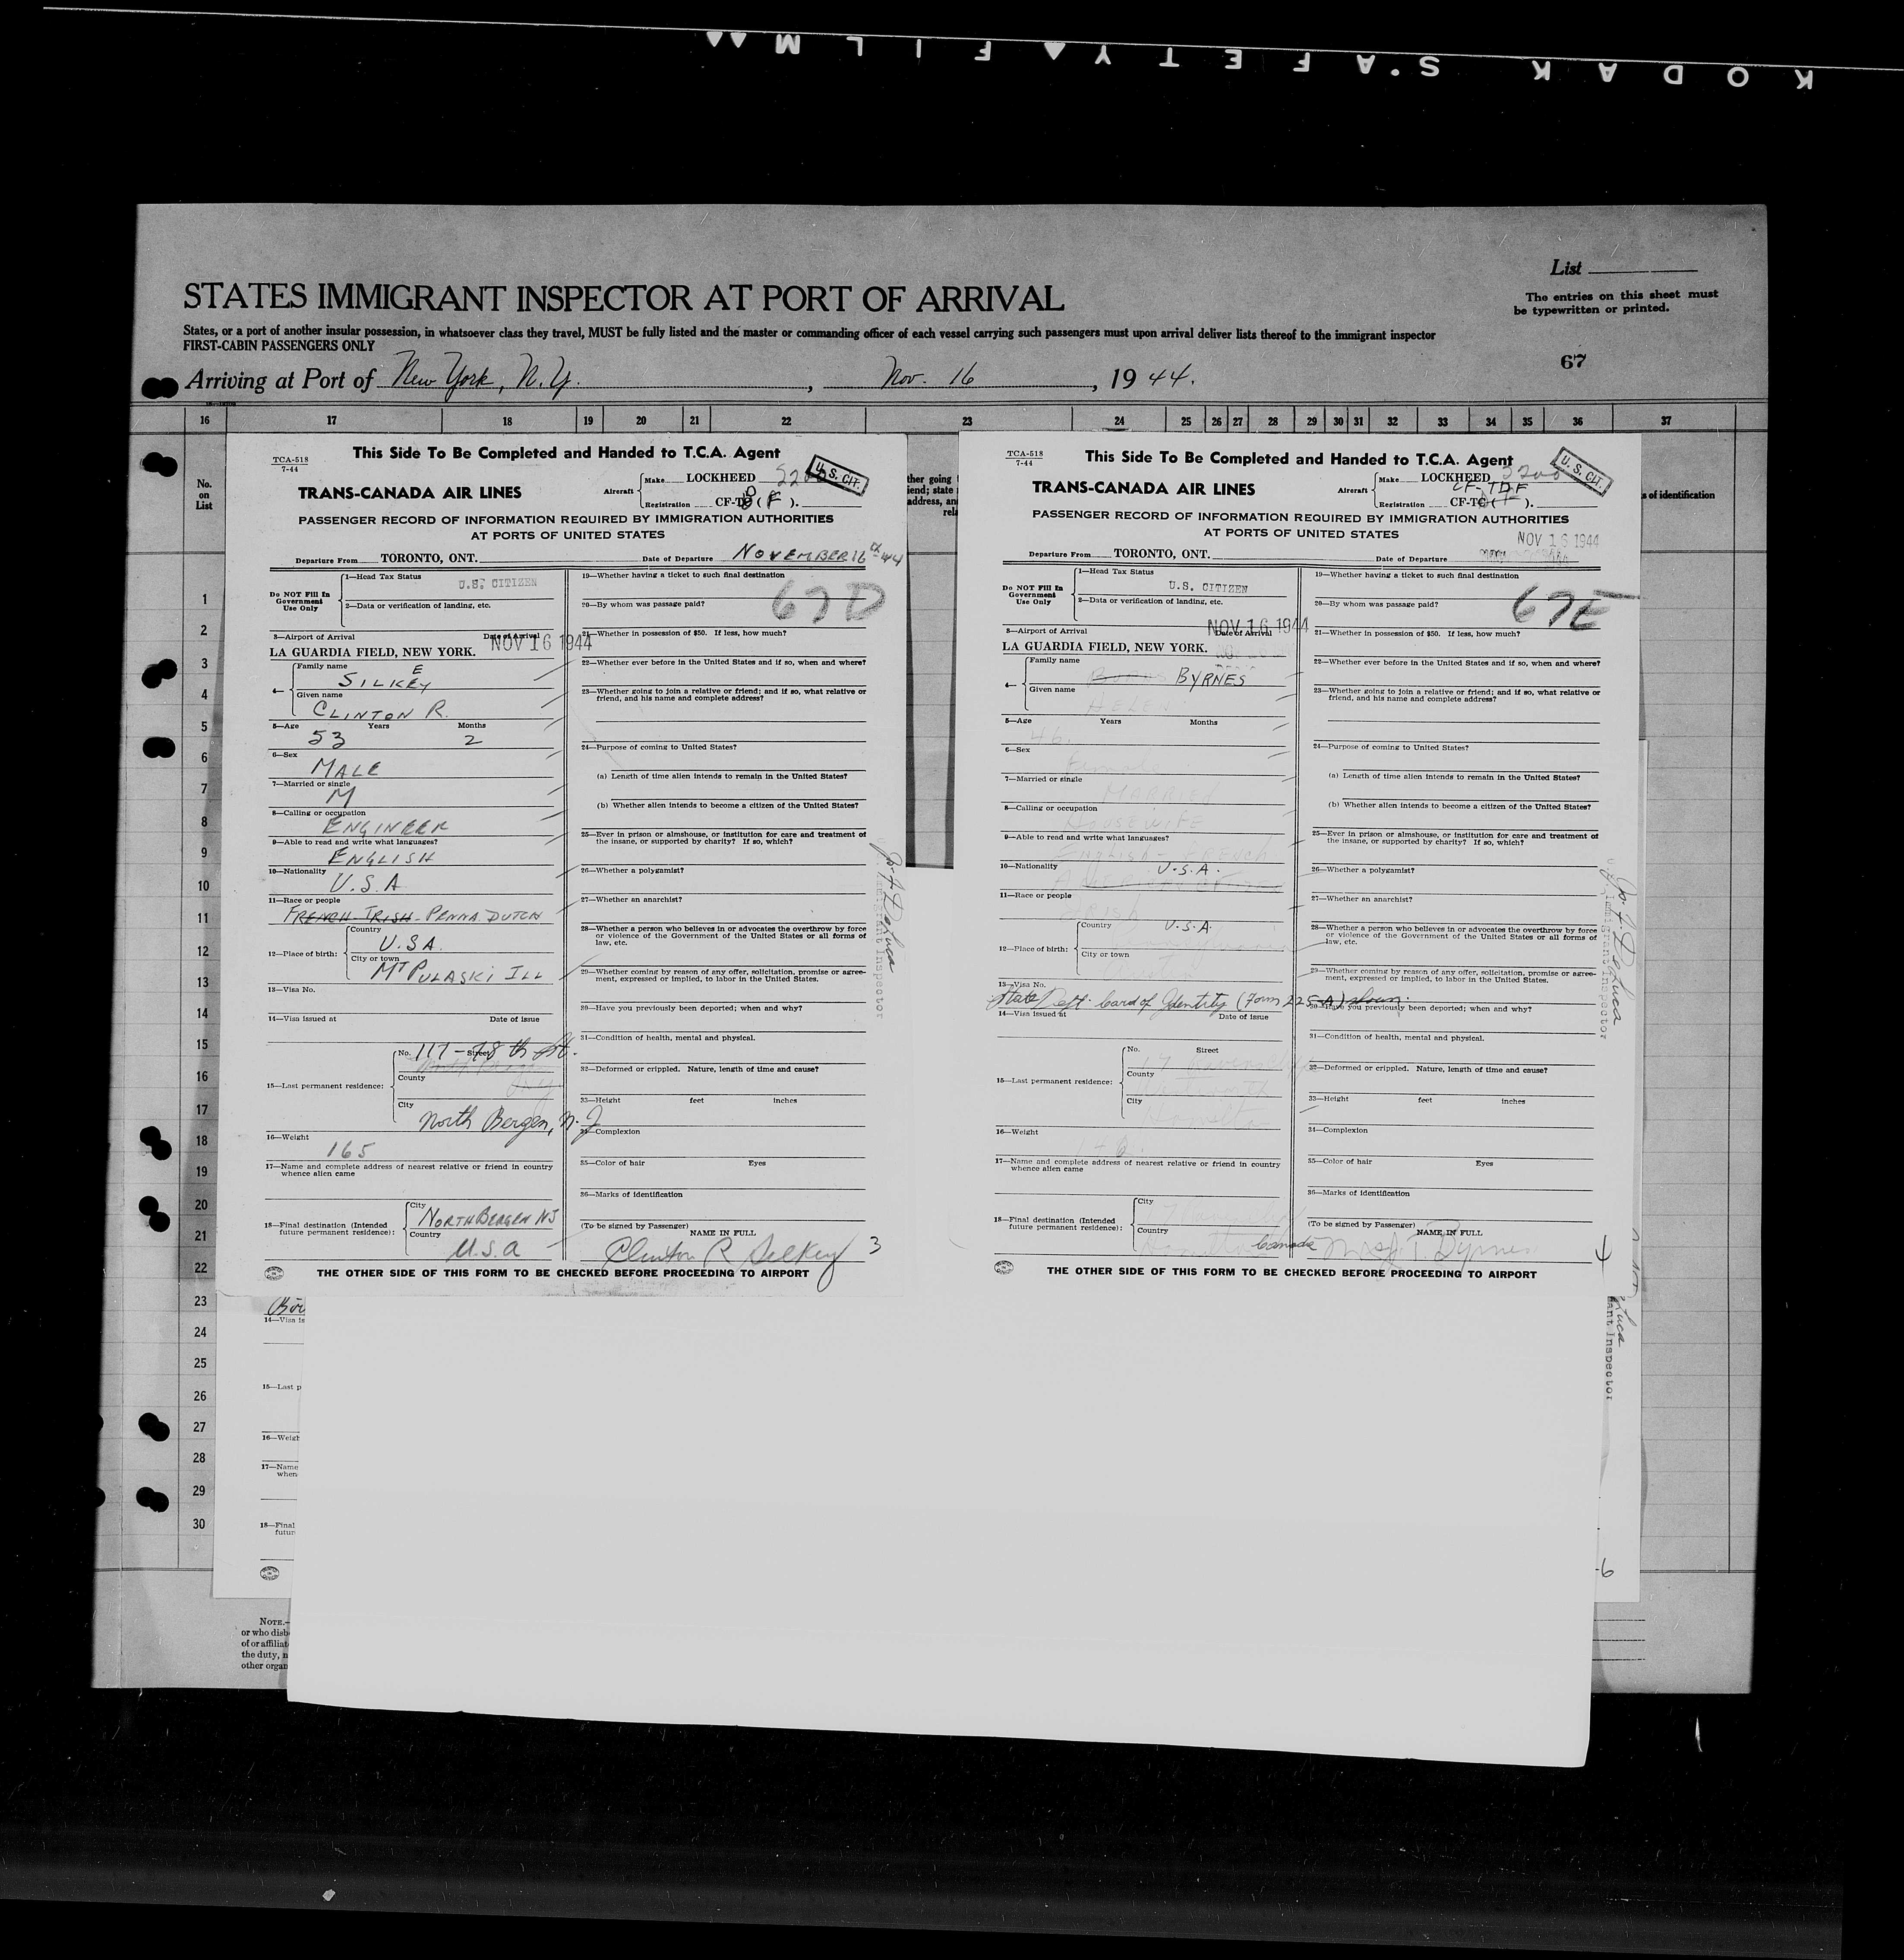 KODAK SAFETY FILM
List
STATES IMMIGRANT INSPECTOR AT PORT OF ARRIVAL
The entries on this sheet must
be typewritten or printed.
States, or a port of another insular possession, in whatsoever class they travel, MUST be fully listed and the master or commanding officer of each vessel carrying such passengers must upon arrival deliver lists thereof to the immigrant inspector
FIRST-CABIN PASSENGERS ONLY
67
Arriving at Port of New York, N.Y. , Nov. 16 , 1944.
16 17 18 19 20 21 22 23 24 25 26 27 28 29 30 31 32 33 34 35 36 37
No.
on
List
1
2
3
4
5
6
7
8
9
10
11
12
13
14
15
16
17
18
19
20
21
22
23
24
25
26
27
28
29
30
This Side To Be Completed and Handed to T.C.A. Agent
TCA-518
7-44
U.S. CIT.
TRANS-CANADA AIR LINES
Aircraft
Make LOCKHEED
Registration CF-T (F).
PASSENGER RECORD OF INFORMATION REQUIRED BY IMMIGRATION AUTHORITIES
AT PORTS OF UNITED STATES
Departure From TORONTO, ONT. Date of Departure NOVEMBER 16 44
Do NOT Fill In
Government
Use Only
1—Head Tax Status U.S. CITIZEN
2—Data or verification of landing, etc.
3—Airport of Arrival Date of Arrival
LA GUARDIA FIELD, NEW YORK. NOV 16 1944
4— Family name
SILKEY E
Given name
CLINTON R.
5—Age Years Months
53 2
6—Sex
MALE
7—Married or single
M
8—Calling or occupation
ENGINEER
9—Able to read and write what languages?
ENGLISH
10—Nationality
U.S.A
11—Race or people
FRENCH-IRISH-PENNA. DUTCH
12—Place of birth:
Country
U.S.A.
City or town
MT PULASKI ILL
13—Visa No.
14—Visa issued at Date of issue
15—Last permanent residence:
No. Street
117-78th St.
County
City
North Bergen, N.J
16—Weight
165
17—Name and complete address of nearest relative or friend in country
whence alien came
18—Final destination (Intended
future permanent residence):
City
NORTH BERGEN NJ
Country
U.S.A
19—Whether having a ticket to such final destination
67D
20—By whom was passage paid?
21—Whether in possession of $50. If less, how much?
22—Whether ever before in the United States and if so, when and where?
23—Whether going to join a relative or friend; and if so, what relative or
friend, and his name and complete address?
24—Purpose of coming to United States?
(a) Length of time alien intends to remain in the United States?
(b) Whether alien intends to become a citizen of the United States?
25—Ever in prison or almshouse, or institution for care and treatment of
the insane, or supported by charity? If so, which?
26—Whether a polygamist?
27—Whether an anarchist?
28—Whether a person who believes in or advocates the overthrow by force
or violence of the Government of the United States or all forms of
law, etc.
29—Whether coming by reason of any offer, solicitation, promise or agree-
ment, expressed or implied, to labor in the United States.
30—Have you previously been deported; when and why?
31—Condition of health, mental and physical.
32—Deformed or crippled. Nature, length of time and cause?
33—Height feet inches
34—Complexion
35—Color of hair Eyes
36—Marks of identification
(To be signed by Passenger) NAME IN FULL
Clinton R Silkey 3
THE OTHER SIDE OF THIS FORM TO BE CHECKED BEFORE PROCEEDING TO AIRPORT
Immigrant Inspector
ther going
iend; state
address, an
rela
This Side To Be Completed and Handed to T.C.A. Agent
TCA-518
7-44
U.S. CIT.
TRANS-CANADA AIR LINES
Aircraft
Make LOCKHEED
CF-TDF
Registration CF-TC (F).
PASSENGER RECORD OF INFORMATION REQUIRED BY IMMIGRATION AUTHORITIES
AT PORTS OF UNITED STATES
NOV 16 1944
Departure From TORONTO, ONT. Date of Departure
Do NOT Fill In
Government
Use Only
1—Head Tax Status U.S. CITIZEN
2—Data or verification of landing, etc.
3—Airport of Arrival Date of Arrival
LA GUARDIA FIELD, NEW YORK. NOV 16 1944
4— Family name
BYRNES
Given name
HELEN
5—Age Years Months
46.
6—Sex
Female
7—Married or single
MARRIED
8—Calling or occupation
HOUSEWIFE
9—Able to read and write what languages?
ENGLISH - FRENCH
10—Nationality
U.S.A.
11—Race or people
Irish
12—Place of birth:
Country
U.S.A.
City or town
13—Visa No.
State Dept. Card of Identity (Form 225-A) shown.
14—Visa issued at Date of issue
15—Last permanent residence:
No. Street
County
City
16—Weight
17—Name and complete address of nearest relative or friend in country
whence alien came
18—Final destination (Intended
future permanent residence):
City
Country
Canada
19—Whether having a ticket to such final destination
67E
20—By whom was passage paid?
21—Whether in possession of $50. If less, how much?
22—Whether ever before in the United States and if so, when and where?
23—Whether going to join a relative or friend; and if so, what relative or
friend, and his name and complete address?
24—Purpose of coming to United States?
(a) Length of time alien intends to remain in the United States?
(b) Whether alien intends to become a citizen of the United States?
25—Ever in prison or almshouse, or institution for care and treatment of
the insane, or supported by charity? If so, which?
26—Whether a polygamist?
27—Whether an anarchist?
28—Whether a person who believes in or advocates the overthrow by force
or violence of the Government of the United States or all forms of
law, etc.
29—Whether coming by reason of any offer, solicitation, promise or agree-
ment, expressed or implied, to labor in the United States.
30—Have you previously been deported; when and why?
31—Condition of health, mental and physical.
32—Deformed or crippled. Nature, length of time and cause?
33—Height feet inches
34—Complexion
35—Color of hair Eyes
36—Marks of identification
(To be signed by Passenger) NAME IN FULL
Mrs J. T. Byrnes 4
THE OTHER SIDE OF THIS FORM TO BE CHECKED BEFORE PROCEEDING TO AIRPORT
Immigrant Inspector
s of identification
14—Visa is
15—Last p
16—Weigh
17—Name
when
18—Final
futur
ant Inspector
6
NOTE.—
or who disb
of or affiliat
the duty, n
other organ